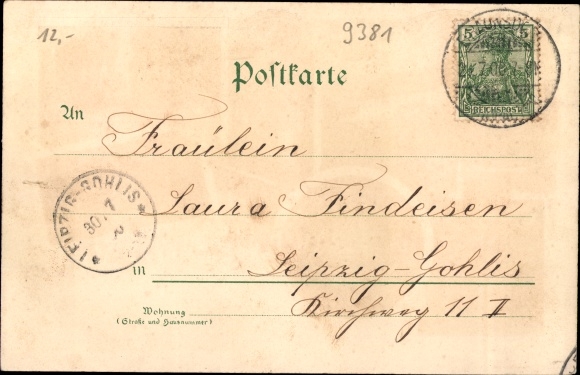 12,-
9381
5 5
REICHSPOST
Postkarte
An
Fräulein
Laura Findeisen
LEIPZIG-GOHLIS
30.7
in Leipzig-Gohlis
Wohnung
(Straße und Hausnummer)
Kirchweg 11 II